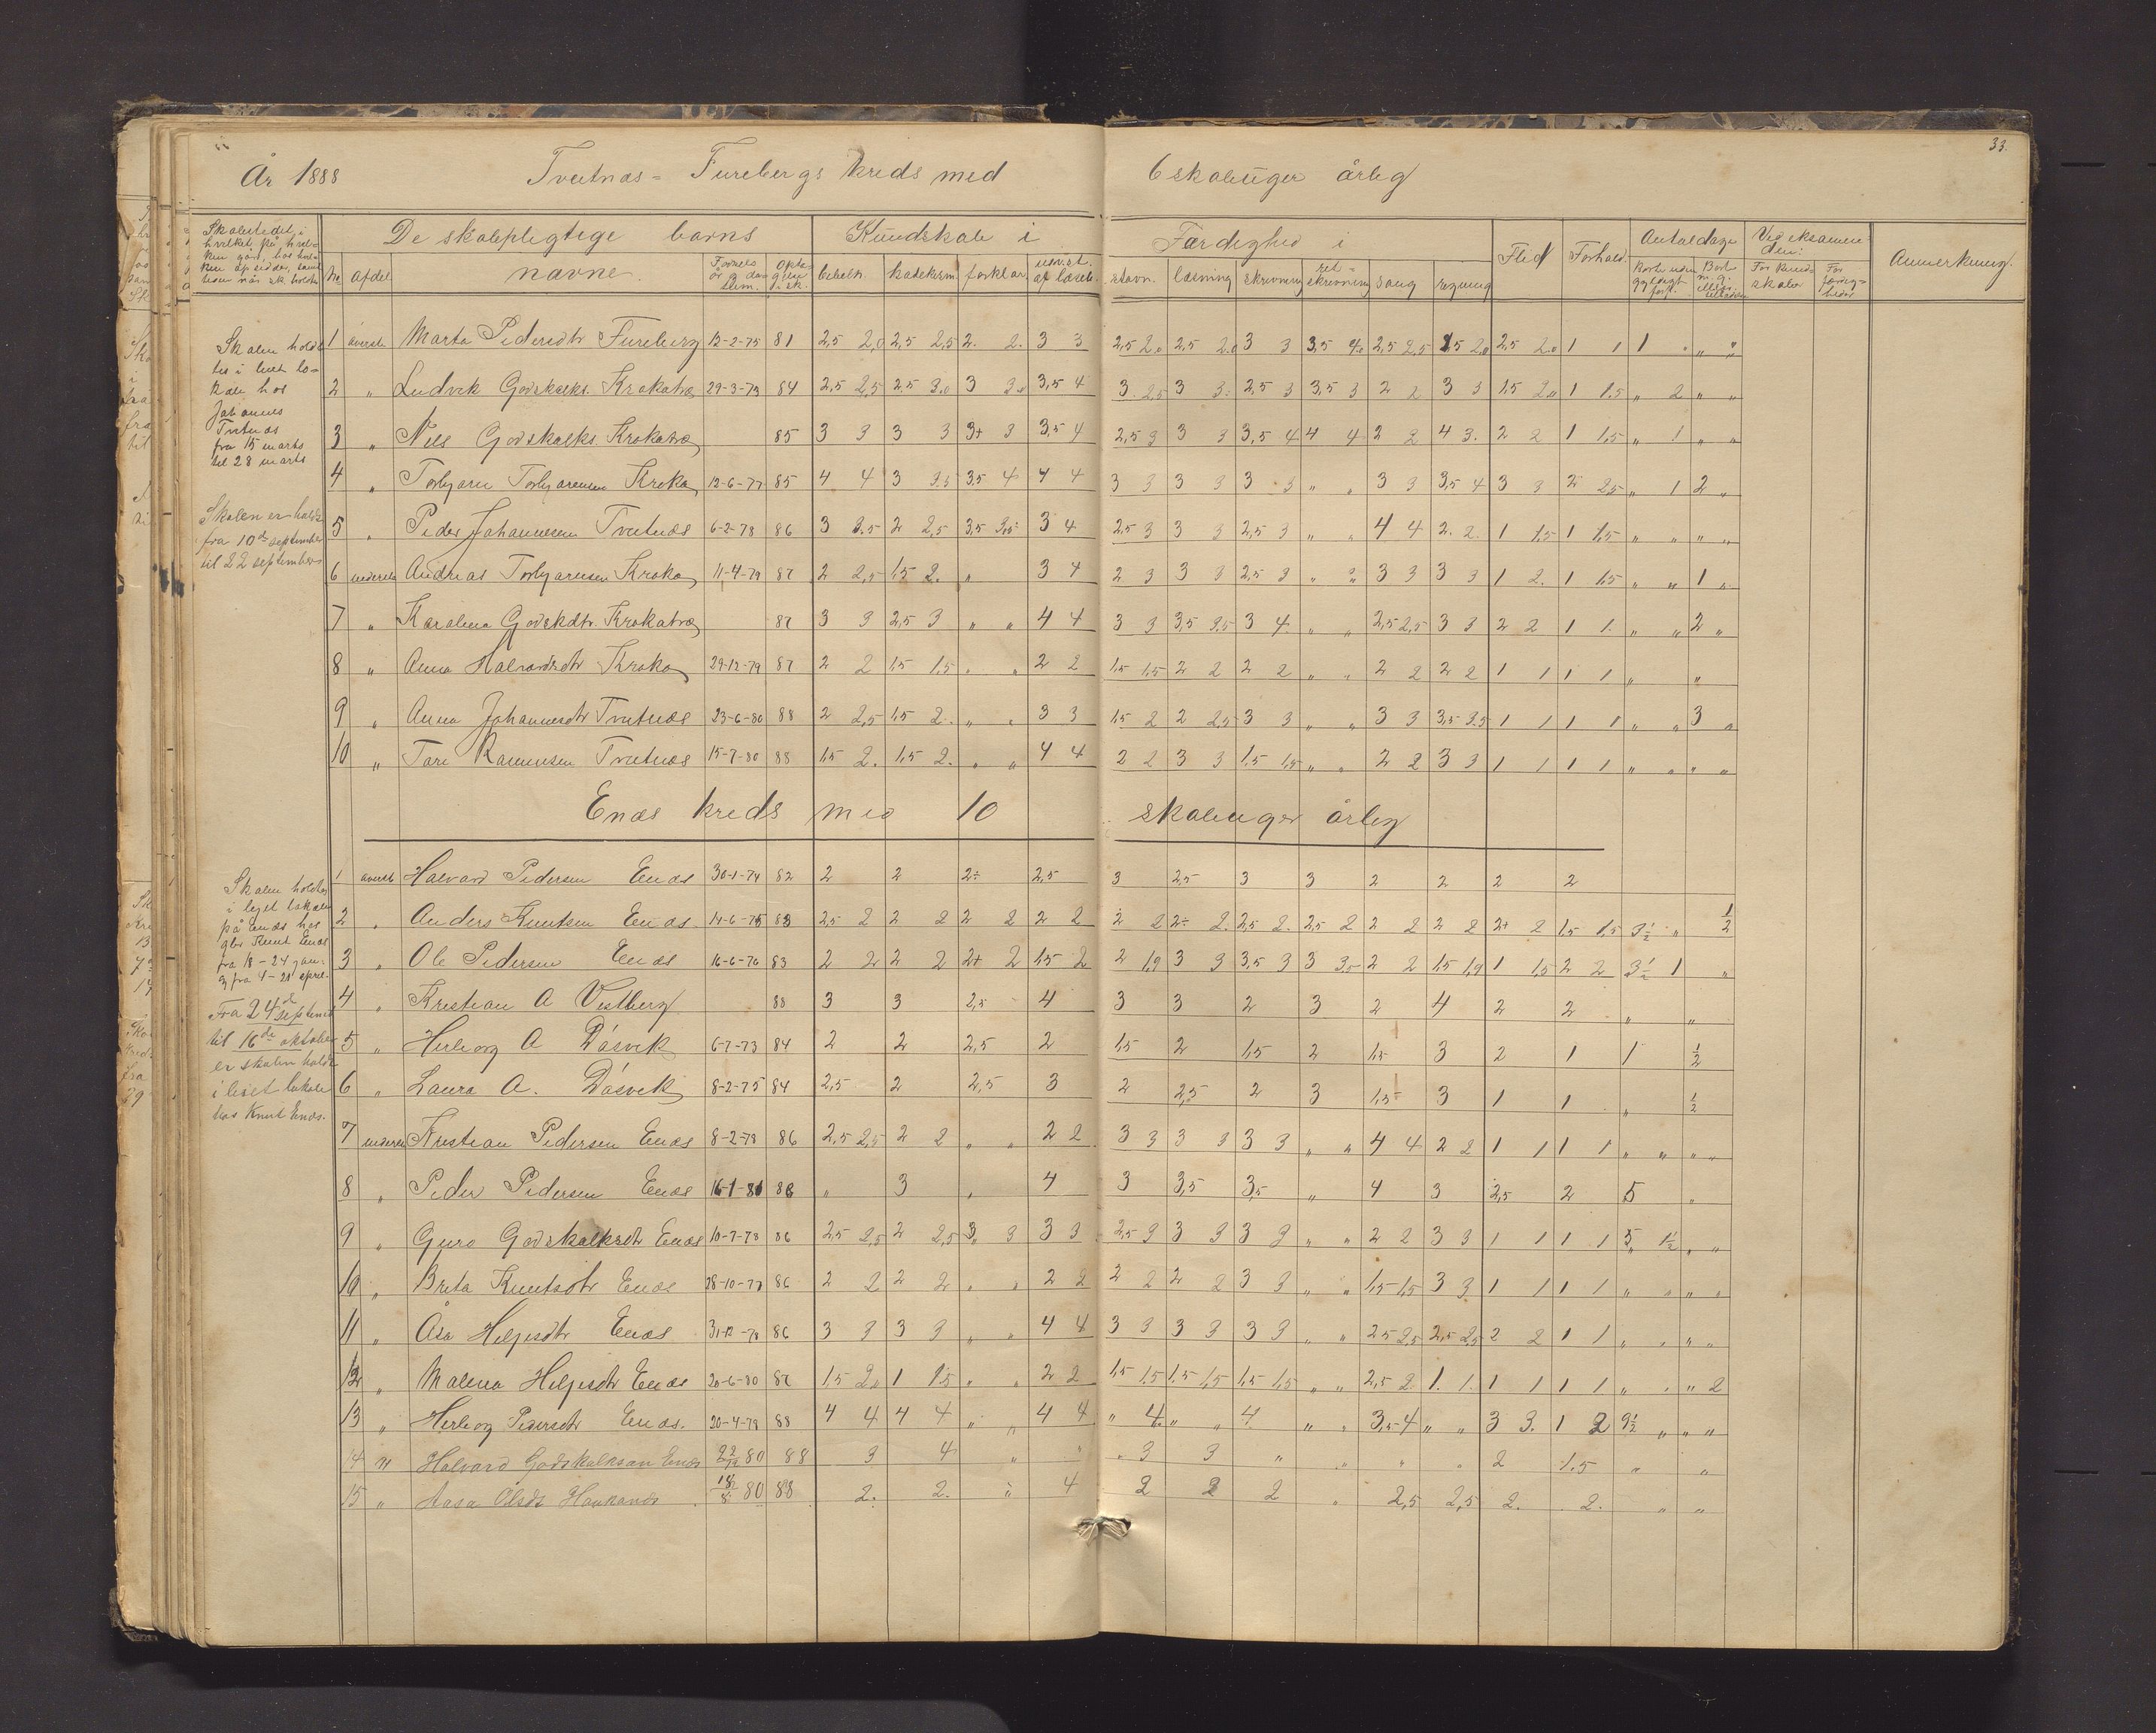 33.
År 1888 Tveitnæs = Furebergs kreds med 6 skoleuger årlig
Skolestedet, i
hvilket, på hvil-
ken gård, hos hvil-
ken opsidder, samt
tiden når sk. holdtes
De skolepligtige barns
Kundskab i
Færdighed i
Flid Forhold. Antal dage Ved eksamen den:
Anmerkning.
No afdel. navne. Fødsels år og dag Dem. Opta- gen i sk. bibelh. katekism. forklar. udv. st. af læseb. stavn. læsning skrivning ret- skrivning sang regning Borte uden gyldigt forf. For kund- skaber For færdig- heder
Skolen hold-
tes i leiet lo-
kale hos
Johannes
Tveitnæs
fra 15 marts
til 28 marts
Skolen er holdt
fra 10de september
til 22 september
1 øverste Marta Pedersdtr Fureberg 12-2-75 81 2,5 2,0 2,5 2,5 2. 2. 3 3 2,5 2,0 2,5 2,0 3 3 3,5 4,0 2,5 2,5 1,5 2,0 2,5 2,0 1 1 1 " " "
2 " Ludvik Godskalks. Krokatræ 29-3-73 84 2,5 2,5 2,5 3,0 3 3,0 3,5 4 3 2,5 3 3 2,5 3 3,5 3 2 2 3 3 1,5 2,0 1 1,5 " 2 " "
3 " Nils Godskalks. Krokatræ 85 3 3 3 3 3+ 3 3,5 4 2,5 3 3 3 3,5 4 4 4 2 2 4 3. 2 2 1 1,5 " 1 " "
4 " Torbjørn Torbjørnsen Kroka 12-6-77 85 4 4 3 3,5 3,5 4 4 4 3 3 3 3 3 3 " " 3 3 3,5 4 3 3 2 2,5 " 1 2 "
5 " Peder Johannesen Tveitnæs 6-2-78 86 3 3,5 2 2,5 3,5 3,5 3 4 2,5 3 3 3 2,5 3 " " 4 4 2. 2. 1 1,5 1 1,5 " " " "
6 nederste Andreas Torbjørnsen Kroka 11-4-79 87 2 2,5 1,5 2. " 3 4 2 3 3 3 2,5 3 " " 3 3 3 3 1 2. 1 1,5 " " 1 "
7 " Karolina Godskdtr. Krokatræ 87 3 3 2,5 3 " " 4 4 3 3 3,5 3,5 3 4. " " 2,5 2,5 3 3 2 2 1 1. " " 2 "
8 " Anna Halvardsdtr Kroka 29-12-79 87 2 2 1,5 1,5 " " 2 2 1,5 1,5 2 2 2 2 " " 2 2 2 2 1 1 1 1 " "
9 " Anna Johannesdtr Tveitnæs 23-6-80 88 2 2,5 1,5 2. " " 3 3 1,5 2 2 2,5 3 3 " " 3 3 3,5 3,5 1 1 1 1 " " 3 "
10 " Tore Rasmusen Tveitnæs 15-7-80 88 1,5 2. 1,5 2. " " 4 4 2 2 3 3 1,5 1,5 " " 2 2 3 3 1 1 1 1 " " " "
Enæs kreds med 10 skoleuger årlig
Skolen holdtes
i leiet lokale
på Enæs hos
gbr Knut Enæs
fra 18 - 24 jan.
og fra 4 - 21 april.
Fra 24de september
til 16de oktober
er skolen holdt
i leiet lokale
hos Knut Enæs.
1 øverste Halvard Pedersen Enæs 30-1-74 82 2 2 2÷ 2,5 3 2,5 3 3 2 2 2 2
2 " Anders Knutsen Enæs 14-6-75 83 2,5 2 2 2 2 2 2 2 2 2 2÷ 2. 2,5 2. 2,5 2 2 2 2 2 2+ 2 1,5 1,5 3½ " ½
3 " Ole Pedersen Enæs 16-6-76 83 2 2 2 2 2+ 2 1,5 2 2 1,9 3 3 3,5 3 3 3,5 2 2 1,5 1,9 1 1,5 2 2 3½ 1 "
4 " Kristian A Vestberg 88 3 3 2,5 4 3 3 2 3 2 4 2 2 " "
5 " Herborg A Dåsvik 6-7-73 84 2 2 2,5 2 1,5 2 1,5 2 1,5 3 2 1 1 ½
6 " Laura A. Dåsvik 8-2-75 84 2,5 2 2,5 3 2 2,5 2 3 1,5 3 1 1 " ½
7 nederste Kristian Pedersen Enæs 8-2-78 86 2,5 2,5 2 2 " " 2 2 3 3 3 3 3 3 " " 4 4 2 2 1 1 1 1 " " " "
8 " Peder Pedersen Enæs 16-1-81 88 " 3 " 4 3 3,5 3,5 " 4 3 2,5 2 5 "
9 " Guro Godskalksdtr Enæs 10-7-78 86 2,5 2,5 2 2,5 3, 3 3 3 2,5 3 3 3 3 3 " " 2 2 3 3 1 1 1 1 5 1½ " "
10 " Brita Knutsdtr Enæs 28-10-77 86 2 2 2 2 " " 2 2 2 2 2 2 3 3 " " 1,5 1,5 3 3 1 1 1 1 " " " "
11 " Åsa Helgesdtr Enæs 31-12-78 86 3 3 3 3 " " 4 4 3 3 3 3 3 3 " " 2,5 2,5 2,5 2,5 2 2 1 1 " " " "
12 " Malena Helgesdtr Enæs 20-6-80 87 1,5 2,0 1 1,5 " " 2 2 1,5 1,5 1,5 1,5 1,5 1,5 " " 2,5 2 1. 1. 1 1 1 1 " " " 2
13 " Herborg Pedersdtr Enæs. 20-4-79 88 4 4 4 4 " " 4 4 " 4. " " 4. " " 3,5 4 " " 3 3. 1 2 9½ " " "
14 " Halvard Godskalksen Enæs 22/12 80 88 3 4 " " " 3 3 " " " " 2 1,5 " "
15 " Aasa Olsdt Haukanæs 18/8 80 88 2. 2. " 4 2 2 2 " 2,5 2,5 2. 2. " "